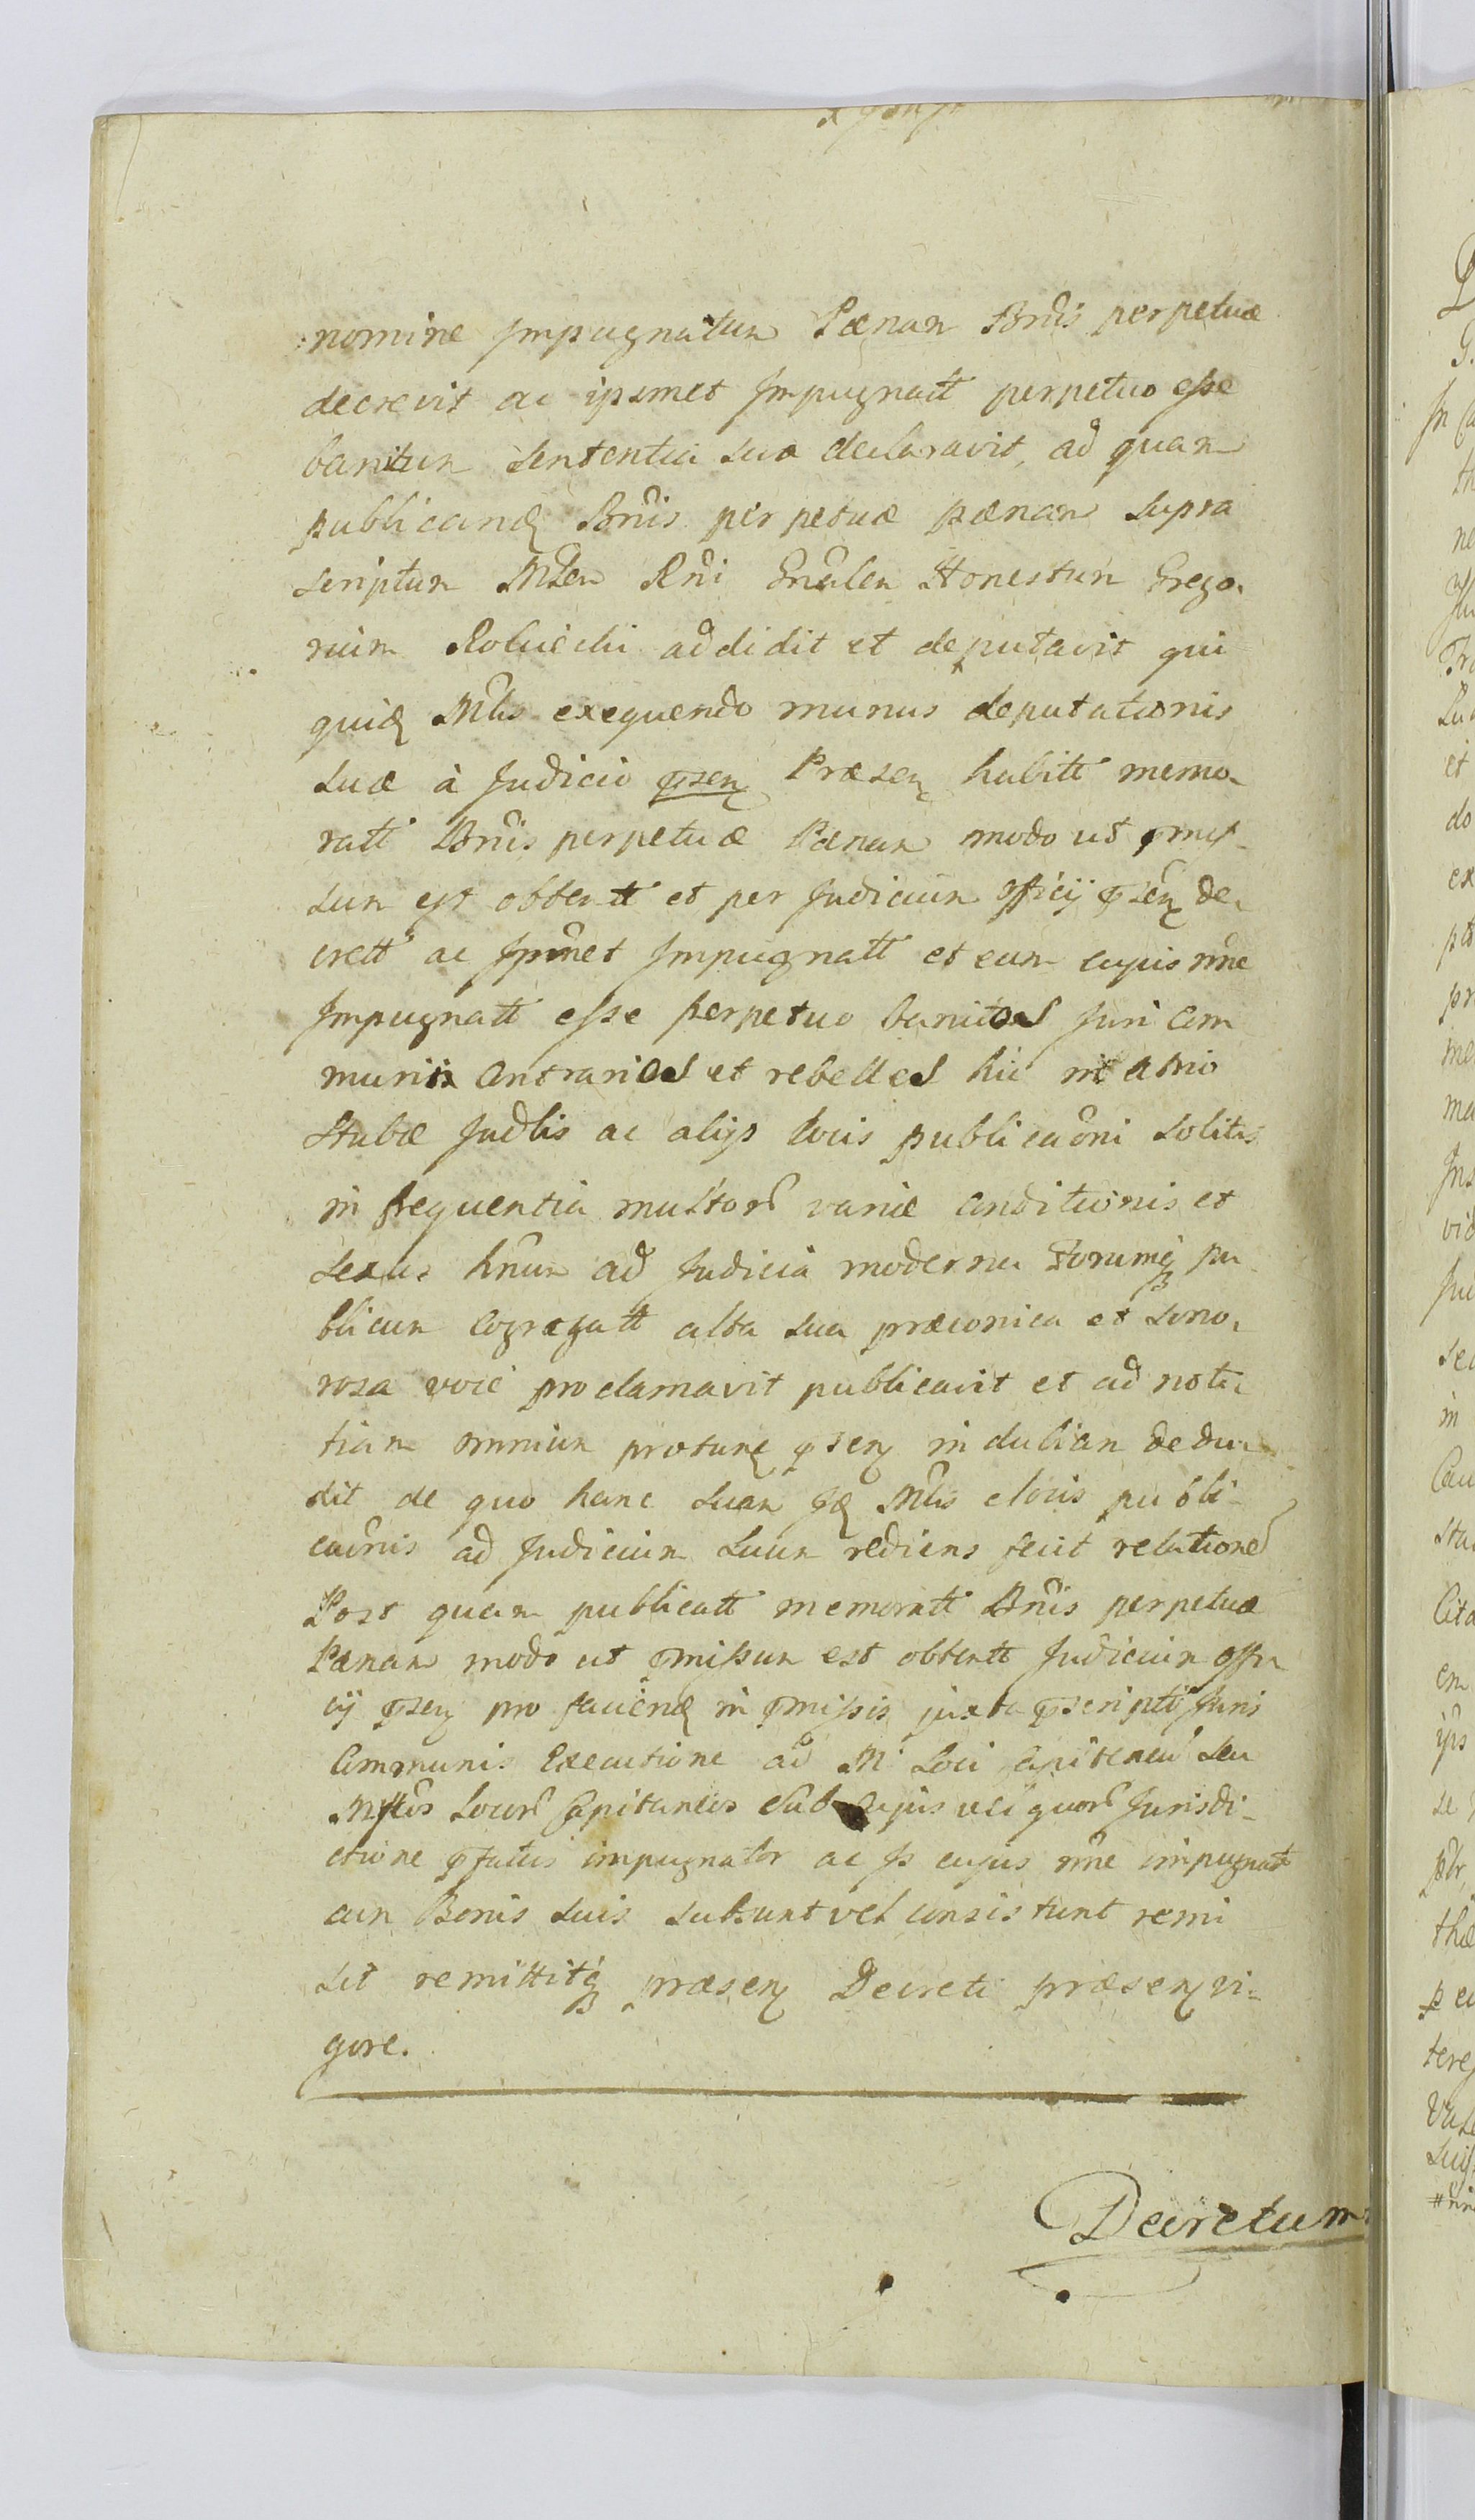 nomine Impugnatum Pænam Bn̄is perpetuæ
decrevit ac ipsmet Impugnatt perpetuo esse
banitum sententia sua declaravit, ad quam
publicand Bn̄is perpetuæ pænam supra
scriptum Mlem Rn̄i Gnalem Honestum Grego-
rium addidit et deputavit qui
quid Mlis exequendo munus deputationis
suæ à Judicio psen Præsen habitt memo-
ratt Bn̄is perpetuæ Pænam modo ut pmis-
sum est obtentt et per Judicium officij psen de-
crett ac Ipmet Impugnatt et eum cujus nn̄e
Impugnatt esse perpetuo banitos Juri com
munii contrarios et rebelles hic in atrio
Stubæ Judlis ac alijs locis publicaōni solitis
in frequentia multor variæ conditionis et
sexus hn̄um ad Judicia moderna Forumq pu-
blicum cogregatt alta sua præconica et sono-
rosa voce proclamavit publicavit et ad noti-
tiam omnium protunc psen in dubiam dedu-
xit de quo hanc suam Mlis ejus publi-
caōnis ad Judicium suum rediens fecit relationem
Post quam publicatt memoratt Bn̄is perpetuæ
Pænam modo ut pmissum est obtentt Judicium offi
cij psen pro faciend in pmissis juxta pscriptt Juris
Communis Executione ad M Loci Capiteneu seu
Mffcos Locor Capitaneos Sub cujus vel quor Jurisdi-
ctione pfatus impugnator ac is cujus nn̄e impugnat
cum Bonis suis subsunt vel consistunt remi
sit remittitq præsen Decreti præsen vi-
gore.
Decretum